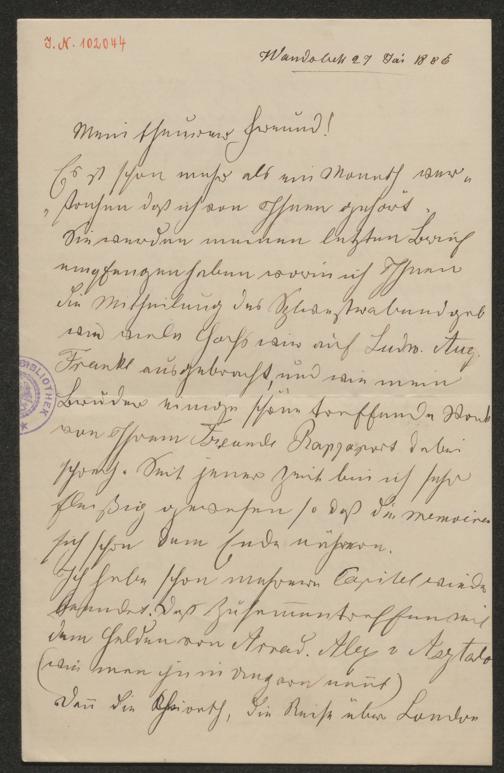 I. N. 102044
Wandsbek 27 Jäi 1886
Mein theurer Freund!
Es ist schon mehr als ein Monath ver-
strichen daß ich von Ihnen gehört.
Sie werden meinen letzten Brief
empfangen haben worin ich Ihnen
die Mittheilung des Sylvesterabend gab
wie viele Hochs wir auf Ludw. Aug.
Frankl ausgebracht, und wie mein
Bruder einige schöne treffende Worte
von Ihrem Freunde Rappaport dabei
sprach. Seit jener Zeit bin ich sehr
fleißig gewesen so daß die Memoiren
sich schon dem Ende nähern.
Ich habe schon mehrere Capitel wieder
beendet. Das Zusammentreffen mit
dem Helden von Arad. Alex v Asztalo
(wie man ihn in Ungarn nennt)
Dann die Heirath, die Reise über London
BIBLIOTHEK